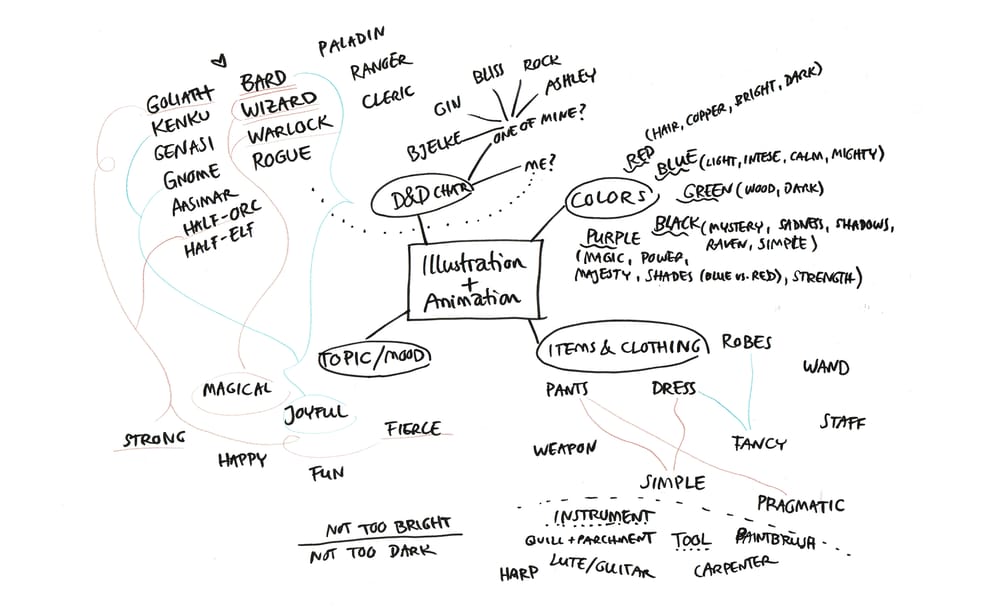 PALADIN
RANGER
CLERIC
BARD
WIZARD
WARLOCK
ROGUE
GOLIATH
KENKU
GENASI
GNOME
AASIMAR
HALF-ORC
HALF-ELF
BLISS
ROCK
ASHLEY
GIN
BJELKE
ONE OF MINE?
ME?
D&D CHAR
COLORS
RED (HAIR, COPPER, BRIGHT, DARK)
BLUE (LIGHT, INTESE, CALM, MIGHTY)
GREEN (WOOD, DARK)
BLACK (MYSTERY, SADNESS, SHADOWS,
RAVEN, SIMPLE)
PURPLE
(MAGIC, POWER,
MAJESTY, SHADES (BLUE VS. RED), STRENGTH)
Illustration
+
Animation
TOPIC/MOOD
MAGICAL
JOYFUL
STRONG
FIERCE
HAPPY
FUN
NOT TOO BRIGHT
NOT TOO DARK
ITEMS & CLOTHING
ROBES
WAND
PANTS
DRESS
STAFF
FANCY
WEAPON
SIMPLE
PRAGMATIC
INSTRUMENT
QUILL + PARCHMENT
TOOL
HARP
LUTE/GUITAR
CARPENTER